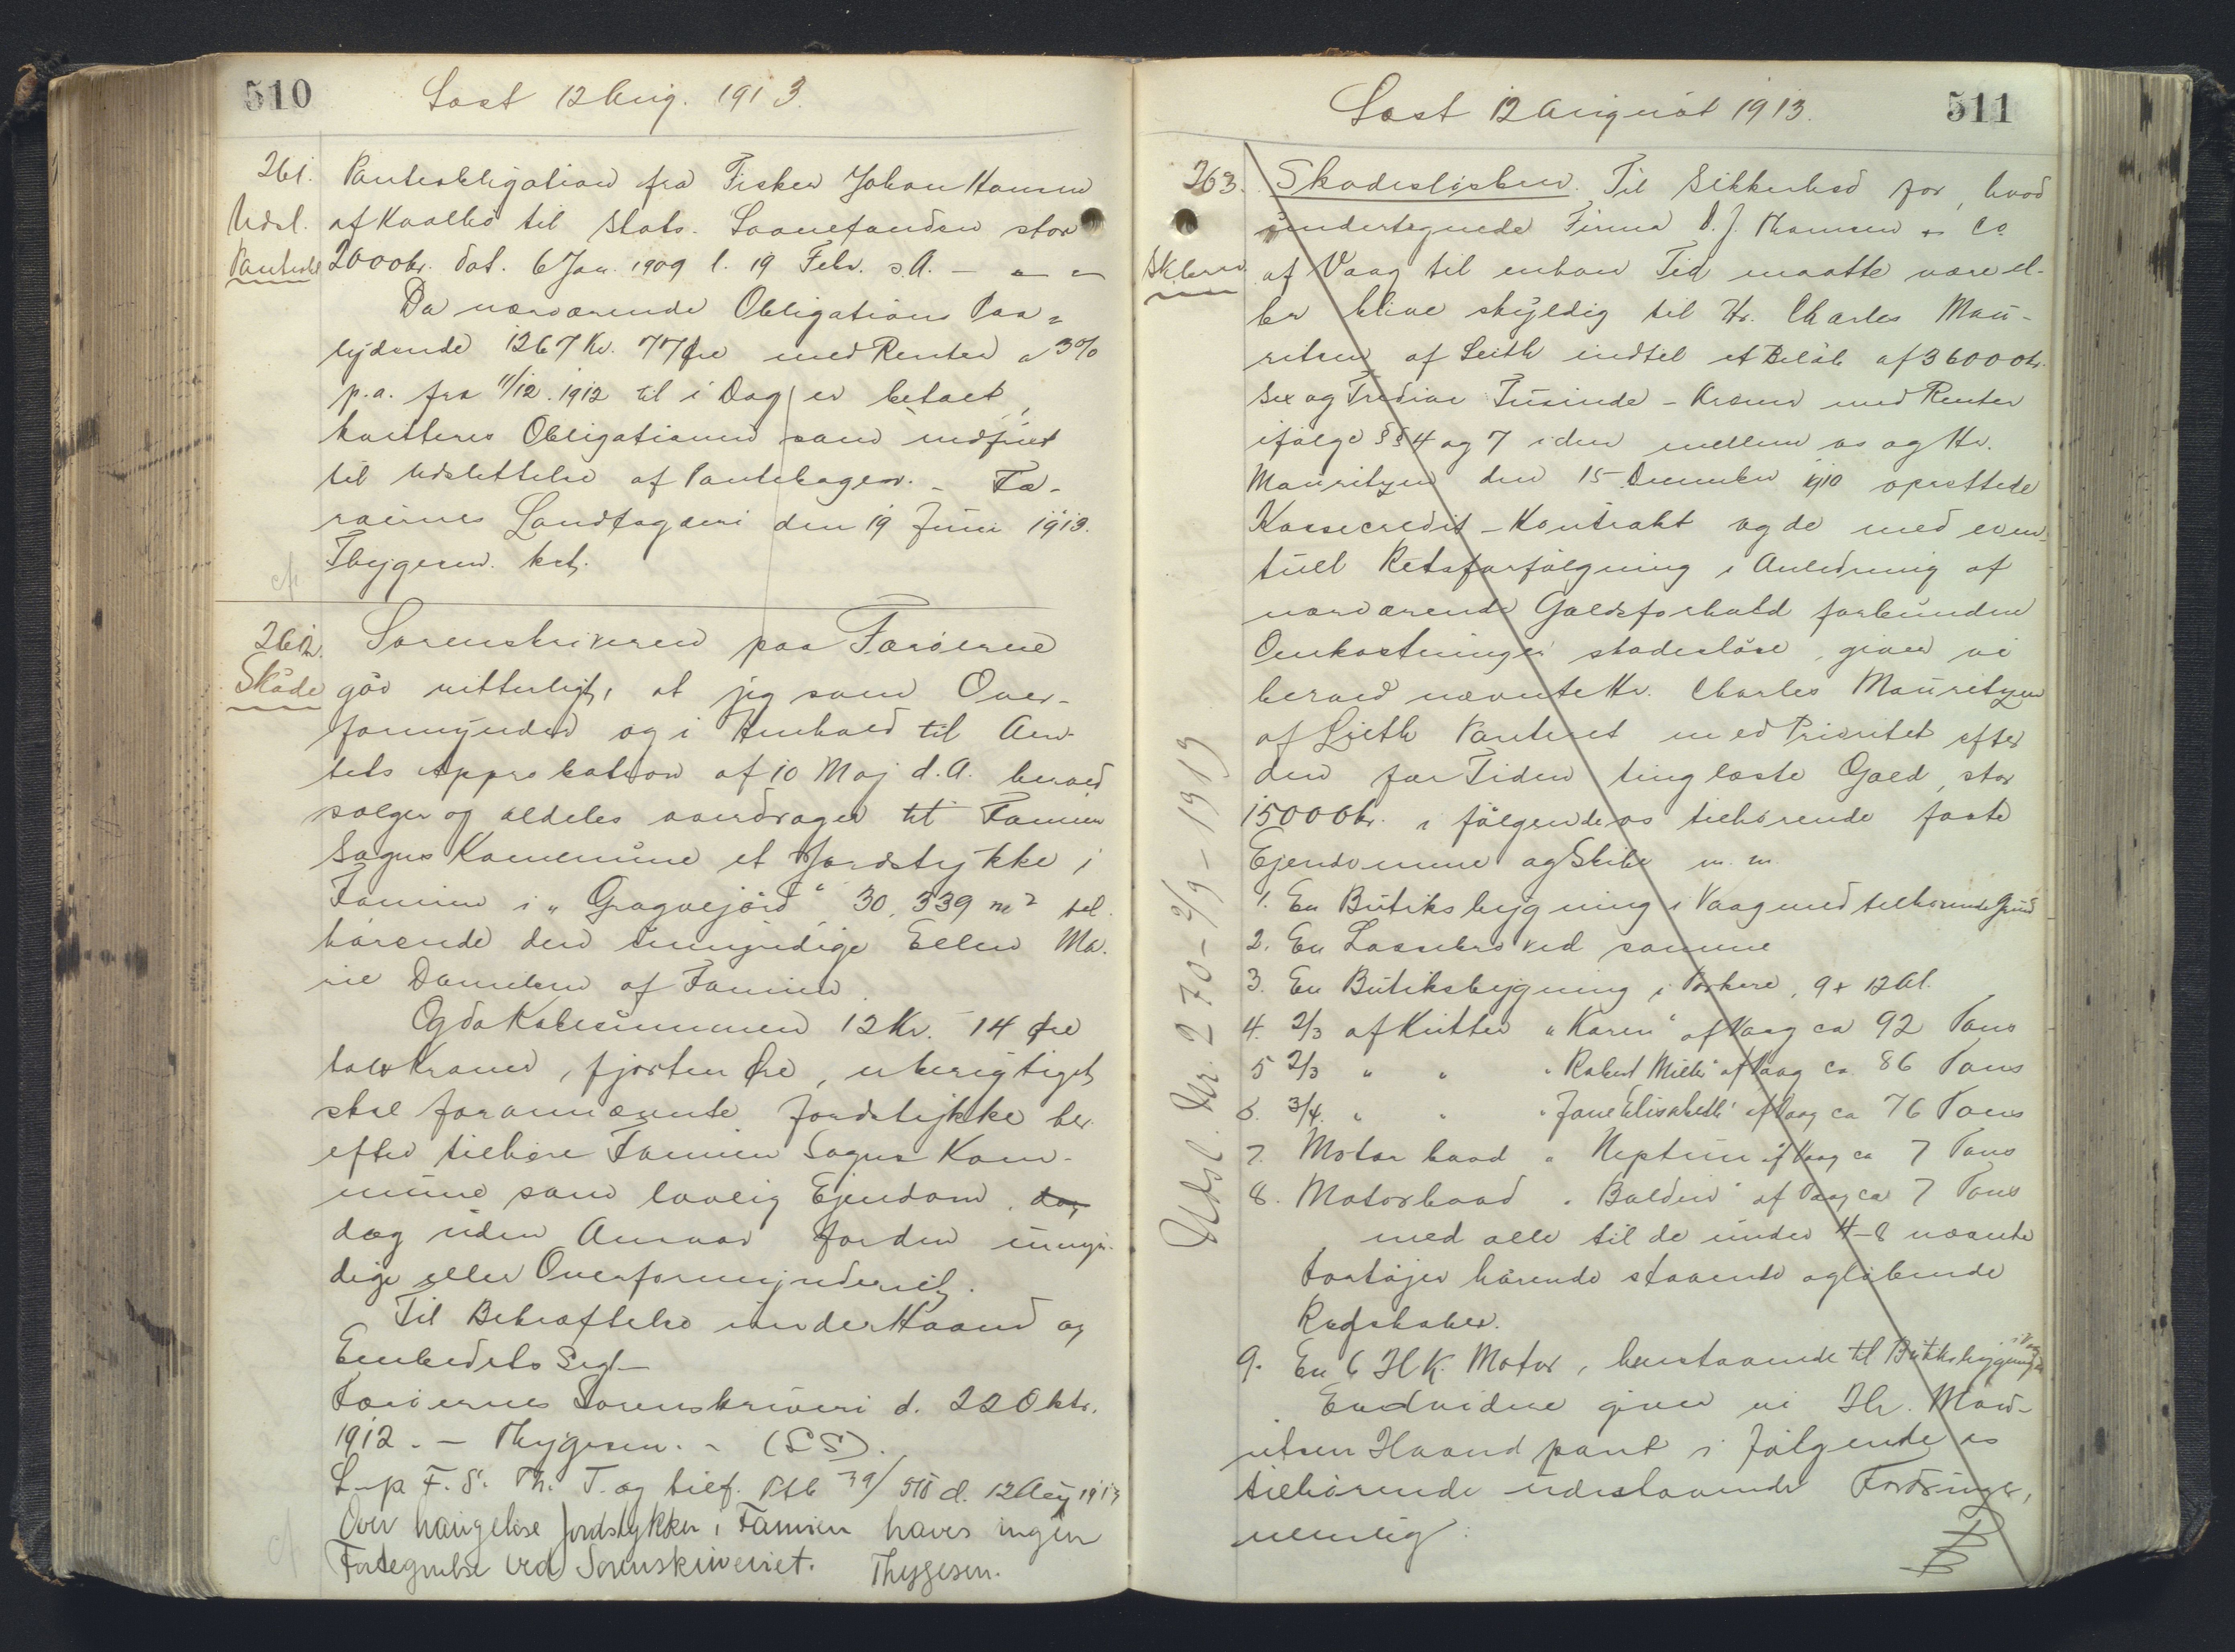 510
Læst 12 Aug. 1913.
261.
Udsl.
Panteobl
Panteobligation fra Fisker Johan Hansen
af Kvalbø til Stats-Laanefonden stor
2000 kr. dat. 6 Jan. 1909 l. 19 Febr. s.A. - " -
Da nærværende Obligations Paa=
lydende 1267 Kr. 77 Øre med Renter a 3%
p.a. fra 11/12. 1912 til i Dag er betalt,
kvitteres Obligationen som indfriet
til Udslettelse af Pantebogen. - Fæ-
røernes Landfogderi den 19 Juni 1913.
Thygesen. kst.
262.
Skøde
Sorenskriveren paa Færøerne
gør vitterligt, at jeg som Over-
formynder og i Henhold til Am-
tets Approbation af 10 Maj d.A. herved
sælger og aldeles overdrager til Famien
Sogns Kommune et Jordstykke i
Famien i "Gragvejørd" 30,339 m2 til-
hørende den umyndige Ellen Ma-
rie Danielsen af Famien.
Og da Købesummen 12 Kr. 14 Øre
tolv Kroner, fjorten Øre, er berigtiget,
skal forannævnte Jordstykke her-
efter tilhøre Famien Sogns Kom-
mune som lovlig Ejendom, dog
dog uden Ansvar for den umyn-
dige eller Overformynderiet.
Til Bekræftelse under Haand og
Embedets Segl-
Færøernes Sorenskriveri d. 22 Oktr.
1912. - Thygesen. - (LS).
L. p. F. S. Th. T. og tilf. Ptb 39/510 d. 12 Aug 1913
Over haugeløse Jordstykker i Famien haves ingen
Fortegnelse ved Sorenskriveriet. Thygesen.
Læst 12 August 1913.
511
263.
Skbrev.
Skadesløsbrev. Til Sikkerhed for, hvad
undertegnede Firma D. J. Thomsen & Co
af Vaag til enhver Tid maatte være el-
ler blive skyldig til Hr. Charles Mau-
ritzen af Leith indtil et Beløb af 36000 kr.
Sex og Tredive Tusinde - Kroner med Renter
ifølge §§ 4 og 7 i den mellem os og Hr.
Mauritzen den 15 December 1910 oprettede
Kassecredit-Kontrakt og de med even-
tuel Retsforfølgning i Anledning af
nærværende Gældsforhold forbunden
Omkostninger skadesløse, giver vi
herved nævnte Hr. Charles Mauritzen
af Leith Panteret med Prioritet efter
den for Tiden tinglæste Gæld, stor
15000 kr. i følgende os tilhørende faste
Ejendomme og Skibe m. m.
1. En Butiksbygning i Vaag med tilhørende Grund
2. En Lossebro ved samme
3. En Butiksbygning i Porkere, 9 x 12 Al.
4. 2/3 af Kutter "Karen" af Vaag ca 92 Tons
5 2/3 " " "Robert Miller" af Vaag ca. 86 Tons
6. 3/4. " " "Jane Elisabeth" af Vaag ca 76 Tons
7. Motorbaad "Neptun" af Vaag ca 7 Tons
8. Motorbaad "Balder" af Vaag ca 7 Tons
med alle til de under 4-8 nævnte
Fartøjer hørende staaende og løbende
Redskaber.
9. En 6 H.K. Motor, henstaaende til Butiksbygningen
i Vaag
Endvidere giver vi Hr. Mau-
ritsen Haandpant i følgende os
tilhørende udestaaende Fordringer,
nemlig:
Udsl. Nr. 270 - 2/9 - 1919